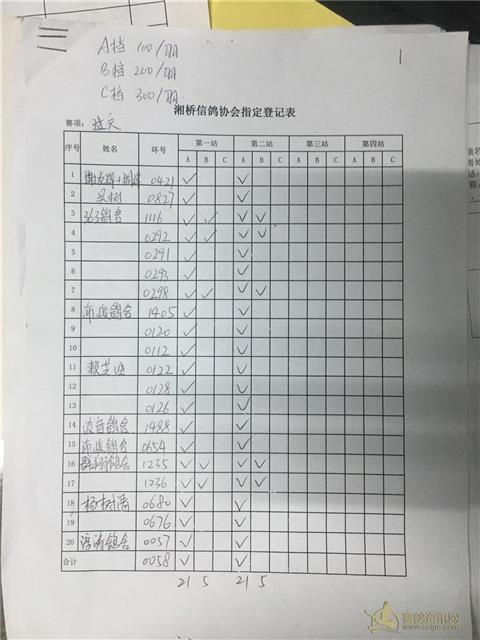 A档 100/羽
B档 200/羽
C档 300/羽
1
湘桥信鸽协会指定登记表
赛项:
序号 姓名 环号 第一站 第二站 第三站 第四站
A B C A B C A B C A B C
1 0421 ✓ ✓
2 吴树 0827 ✓ ✓
3 363鸽舍 1116 ✓ ✓ ✓ ✓
4 0292 ✓ ✓ ✓ ✓
5 0291 ✓ ✓
6 0293 ✓ ✓
7 0298 ✓ ✓ ✓ ✓
8 鸽舍 1405 ✓ ✓
9 0120 ✓ ✓
10 0112 ✓ ✓
11 0122 ✓ ✓
12 0128 ✓ ✓
13 0126 ✓ ✓
14 鸽舍 1488 ✓ ✓
15 鸽舍 0654 ✓ ✓
16 群翔鸽舍 1235 ✓ ✓ ✓ ✓
17 1236 ✓ ✓ ✓ ✓
18 杨树 0680 ✓ ✓
19 0676 ✓ ✓
20 鸽舍 0057 ✓ ✓
合计 0058 ✓ ✓
21 5 21 5
赛鸽资讯网